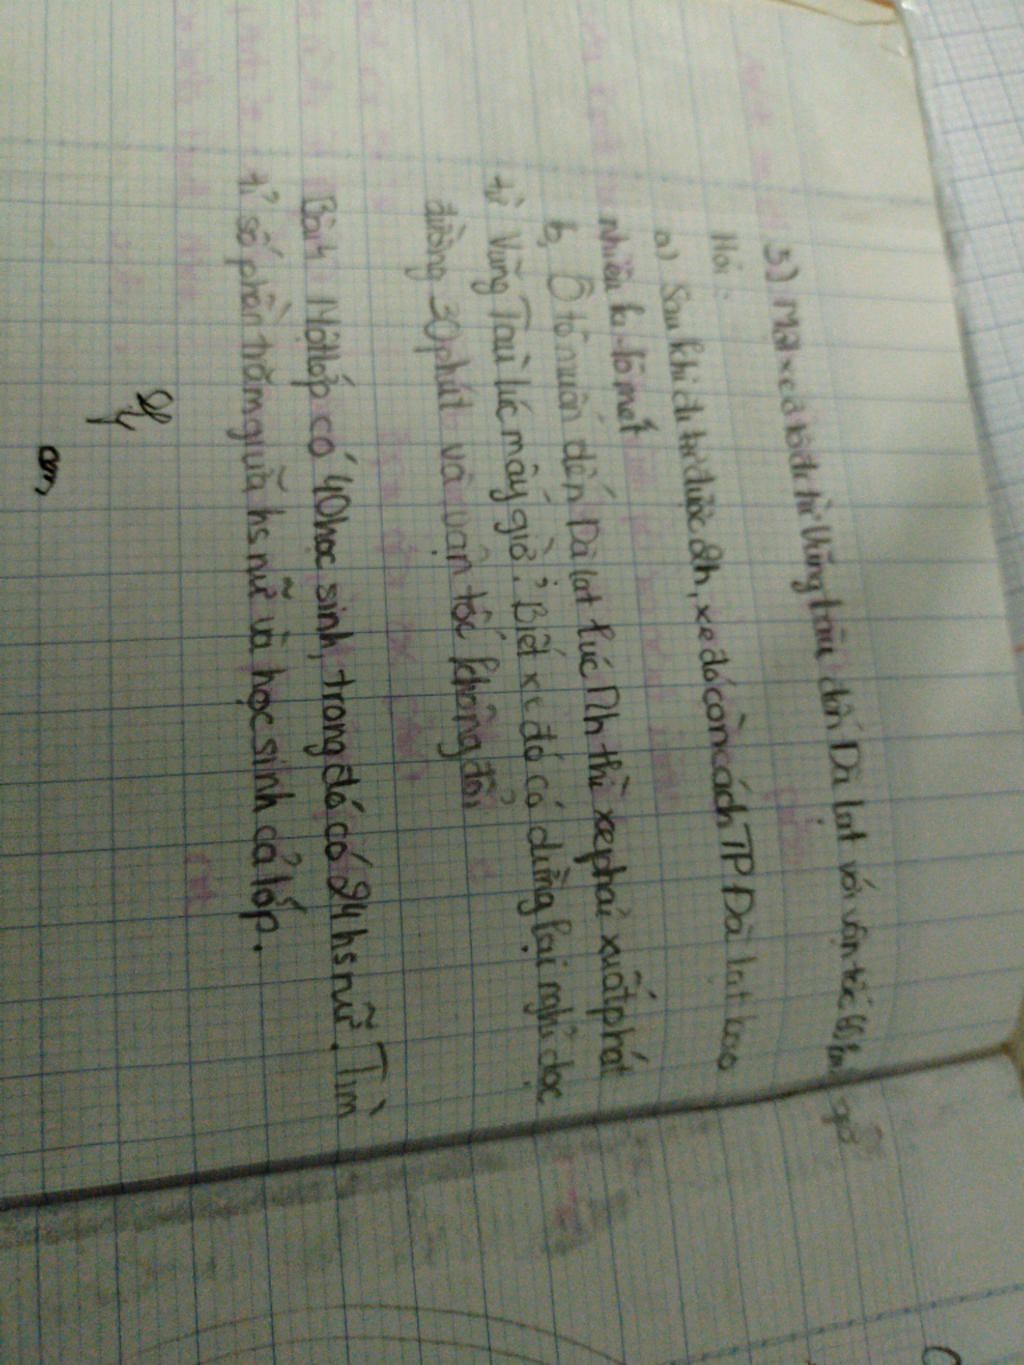 5) Một xe ô tô đi từ Vũng tàu đến Đà lạt với vận tốc giờ
Hỏi:
a) Sau khi đi được 2h, xe đó còn cách TP Đà lạt bao
nhiêu ki-lô mét
b, Ô tô muốn đến Đà lạt lúc 11h thì xe phải xuất phát
từ Vũng Tàu lúc mấy giờ? Biết xe đó có dừng lại nghỉ dọc
đường 30 phút và vận tốc không đổi
Bài 4 Một lớp có 40 học sinh, trong đó có 24 hs nữ. Tìm
tỉ số phần trăm giữa hs nữ và học sinh cả lớp.